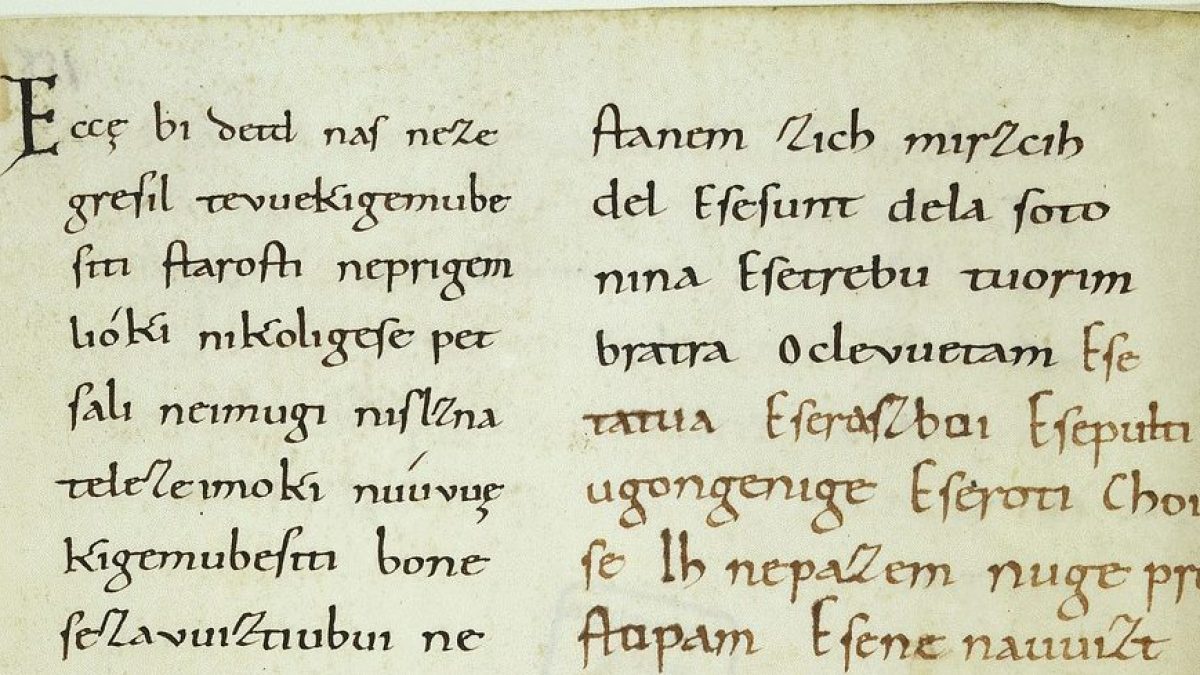 Eccę bi detd naſ neze
greſil tevuekigemube
ſiti ſtaroſti neprigem
lióki nikoligeſe pet
ſali neimugi niſlzna
telezeimoki nuúvuę
kigemubeſiti bone
ſezavuiztiubui ne
ſtanem zich mirſzcih
del Eſeſunt dela ſoto
nina Eſetrebu tuorim
bratra Oclevuetam Eſe
tatua Eſeraſzboi Eſepulti
ugongenige Eſeroti Choi
ſe Ih nepazem nuge pre
ſtopam Eſene nauuizt